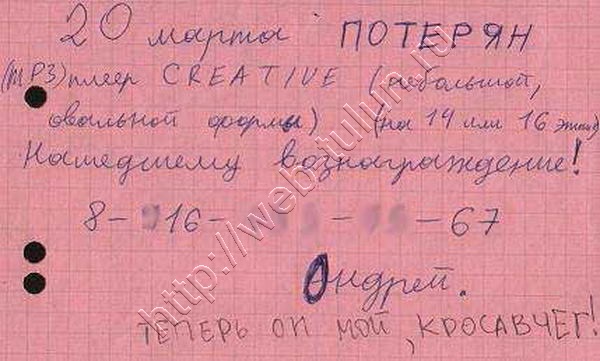 20 марта ПОТЕРЯН
(MP3) плеер CREATIVE (небольшой,
овальной формы) (на 14 или 16 этаж)
Нашедшему вознаграждение!
8- 916- - -67
Андрей.
ТЕПЕРЬ ОН МОЙ, КРОСАВЧЕГ!
http://web-tulun.ru